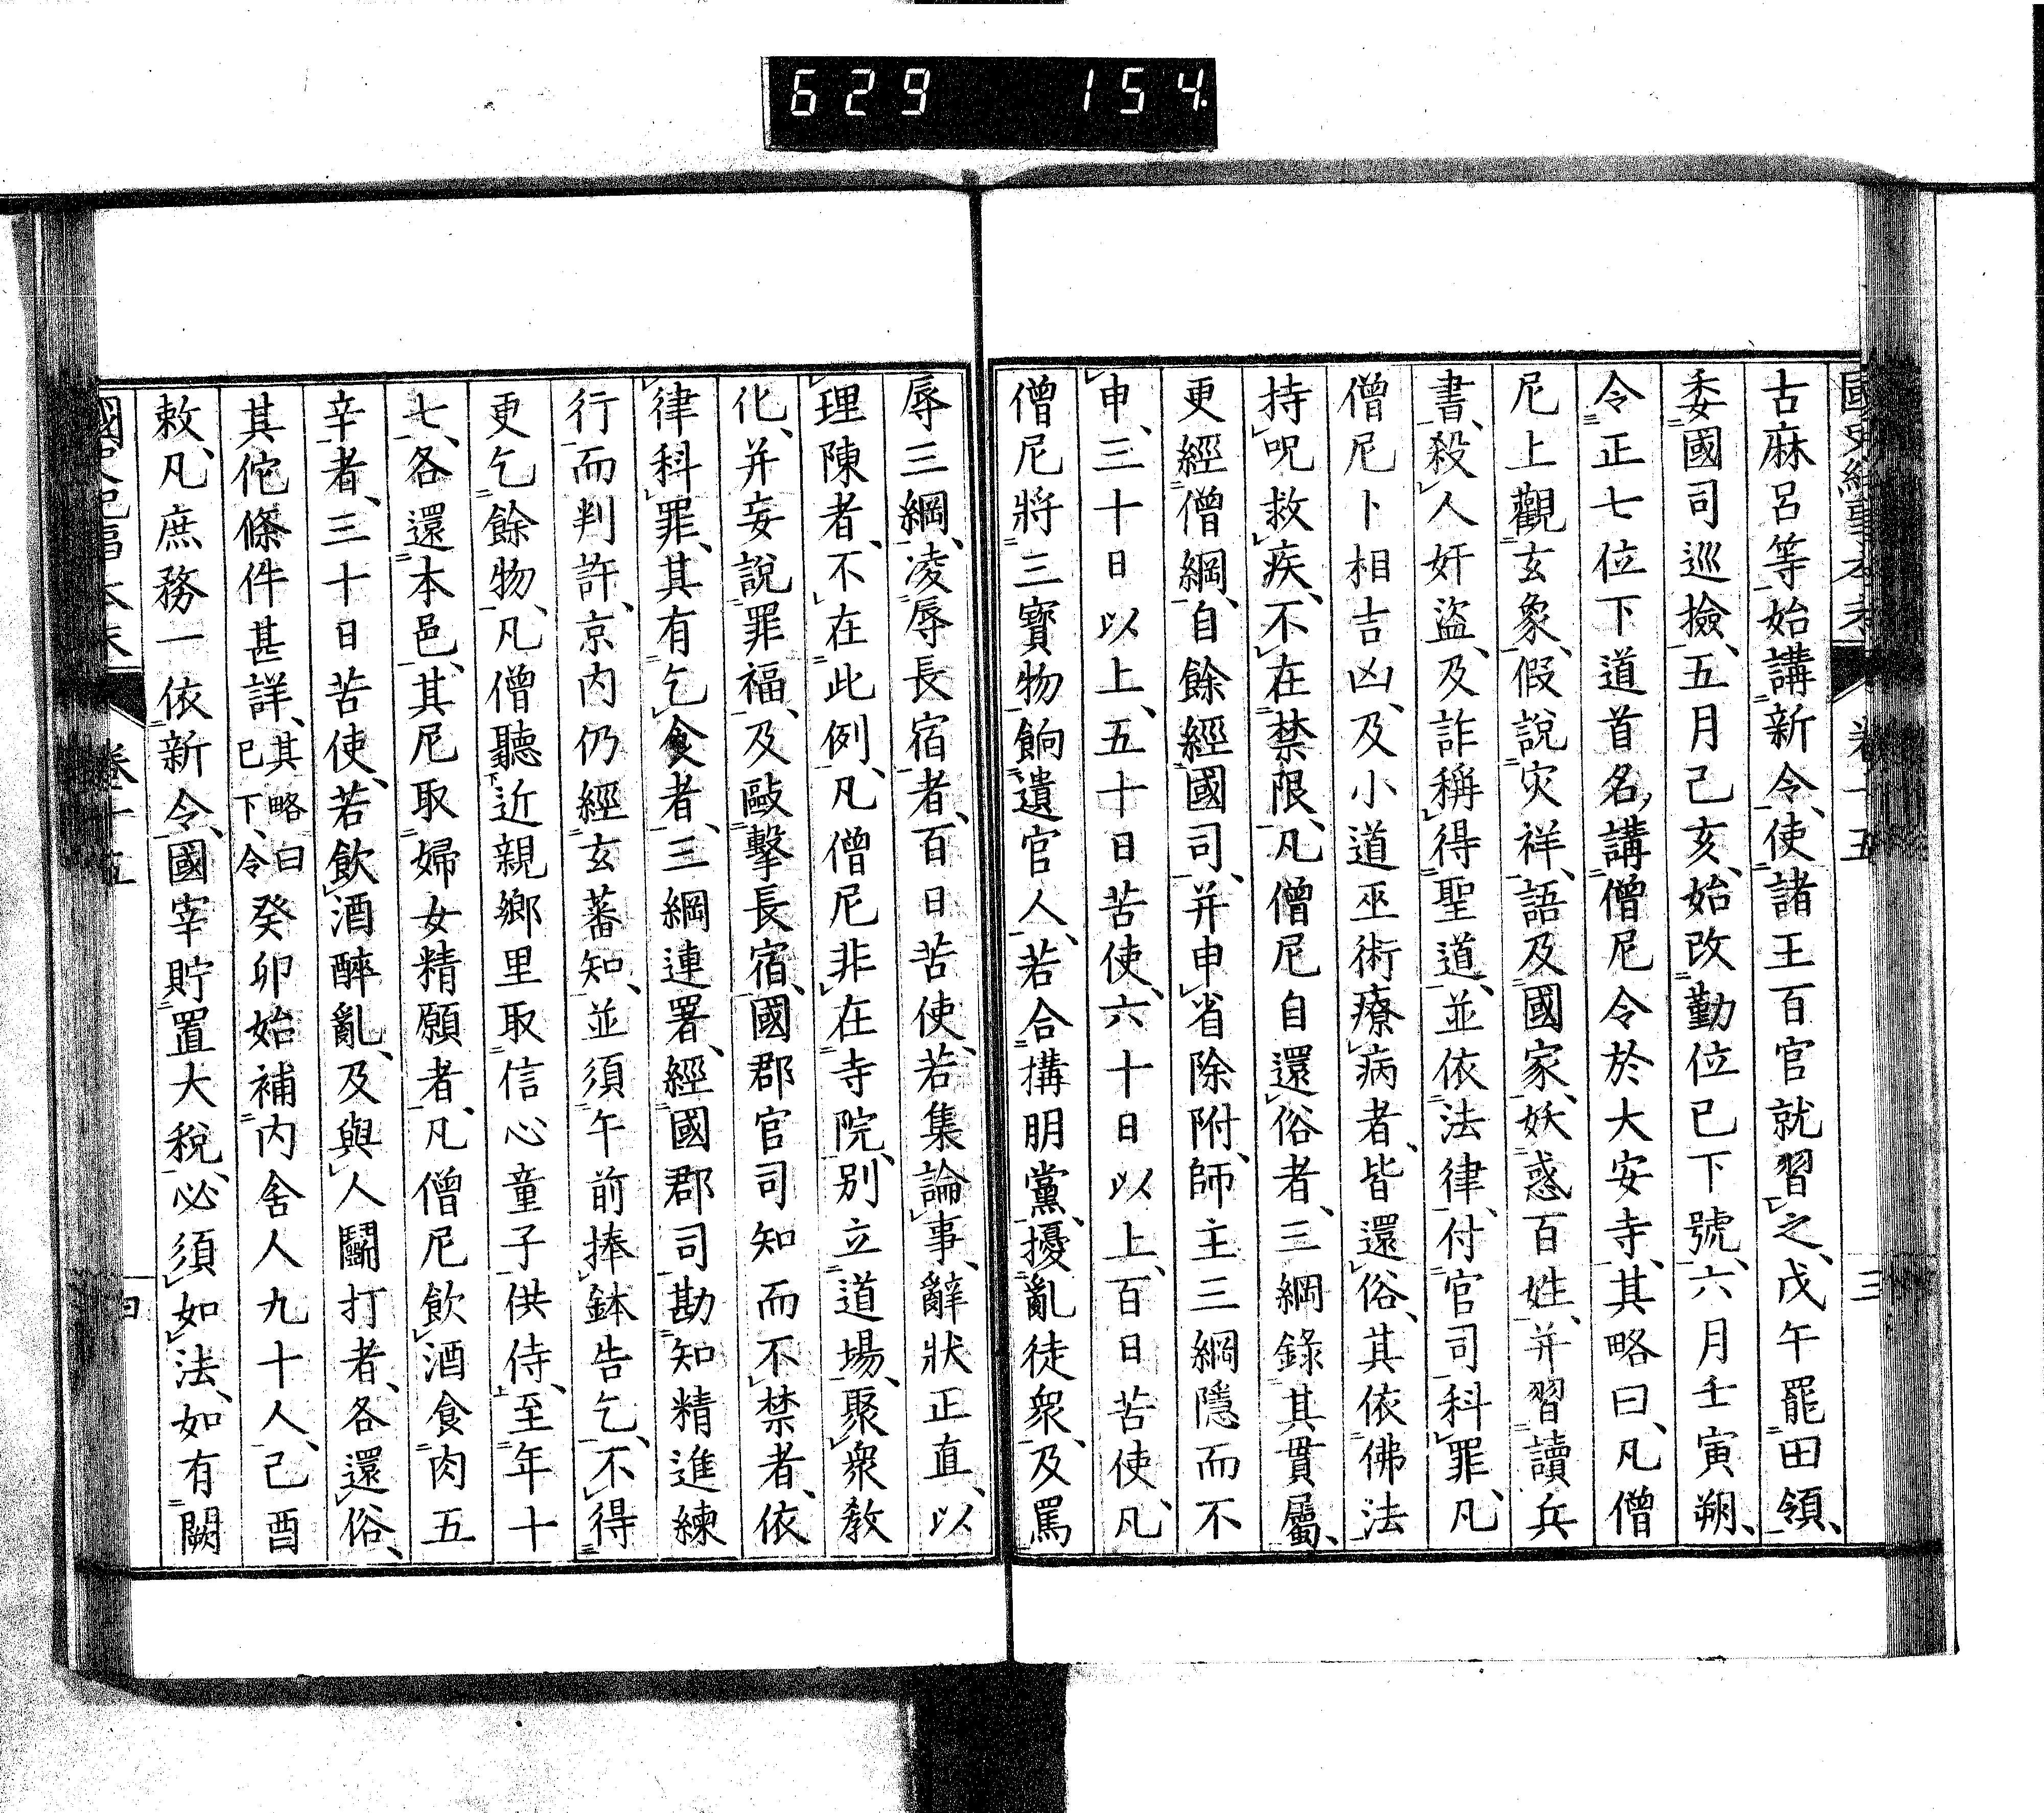 629 154
國史紀事本末 卷十五 三
古麻呂等、始講新令、使諸王百官就習之、戊午罷田領、
委國司巡撿、五月己亥、始改勤位已下號、六月壬寅朔、
令正七位下道首名、講僧尼令於大安寺、其略曰、凡僧
尼上觀玄象、假說灾祥、語及國家、妖惑百姓、并習讀兵
書、殺人奸盜、及詐稱得聖道、並依法律、付官司科罪、凡
僧尼卜相吉凶、及小道巫術療病者、皆還俗、其依佛法
持呪救疾、不在禁限、凡僧尼自還俗者、三綱錄其貫屬、
更經僧綱、自餘經國司、并申省除附、師主三綱隱而不
申、三十日以上、五十日苦使、六十日以上、百日苦使、凡
僧尼將三寶物餉遺官人、若合搆朋黨、擾亂徒衆、及罵
辱三綱、凌辱長宿者、百日苦使、若集論事、辭狀正直、以
理陳者、不在此例、凡僧尼非在寺院、別立道場、聚衆教
化、并妄說罪福、及毆擊長宿、國郡官司知而不禁者、依
律科罪、其有乞食者、三綱連署、經國郡司勘知精進練
行而判許、京内仍經玄蕃知、並須午前捧鉢告乞、不得
更乞餘物、凡僧聽近親鄉里取信心童子供侍、至年十
七、各還本邑、其尼取婦女精願者、凡僧尼飮酒食肉五
辛者、三十日苦使、若飮酒醉亂、及與人鬪打者、各還俗、
其佗條件甚詳、其略曰已下、令癸卯始補内舍人九十人、己酉
敕、凡庶務一依新令、國宰貯置大稅、必須如法、如有闕
國史紀事本末 卷十五 四